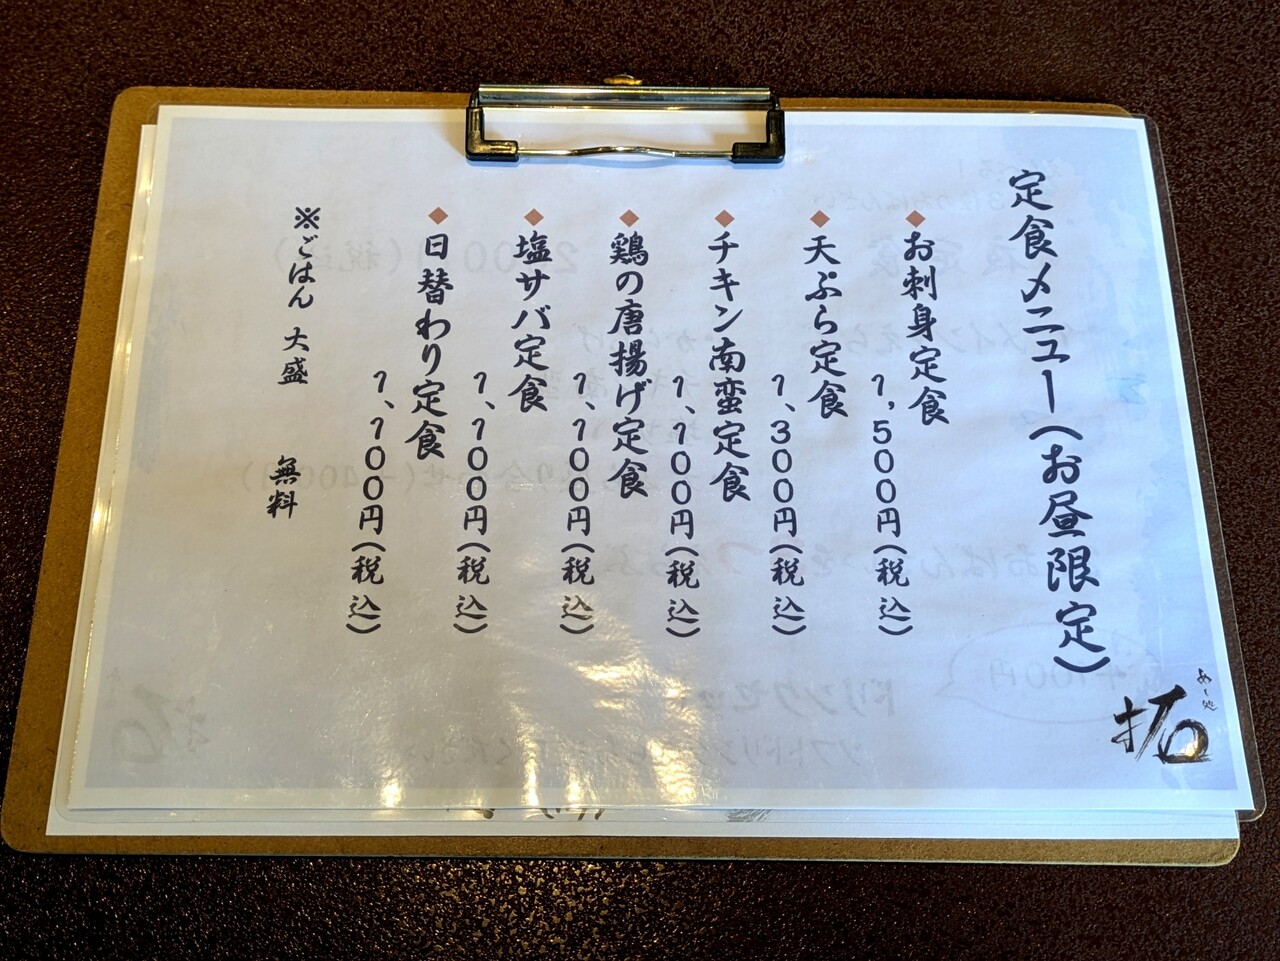 定食メニュー(お昼限定)
◆お刺身定食
1,500円(税込)
◆天ぷら定食
1、300円(税込)
◆チキン南蛮定食
1、100円(税込)
◆鶏の唐揚げ定食
1、100円(税込)
◆塩サバ定食
1、100円(税込)
◆日替わり定食
1、100円(税込)
※ごはん 大盛 無料
拓